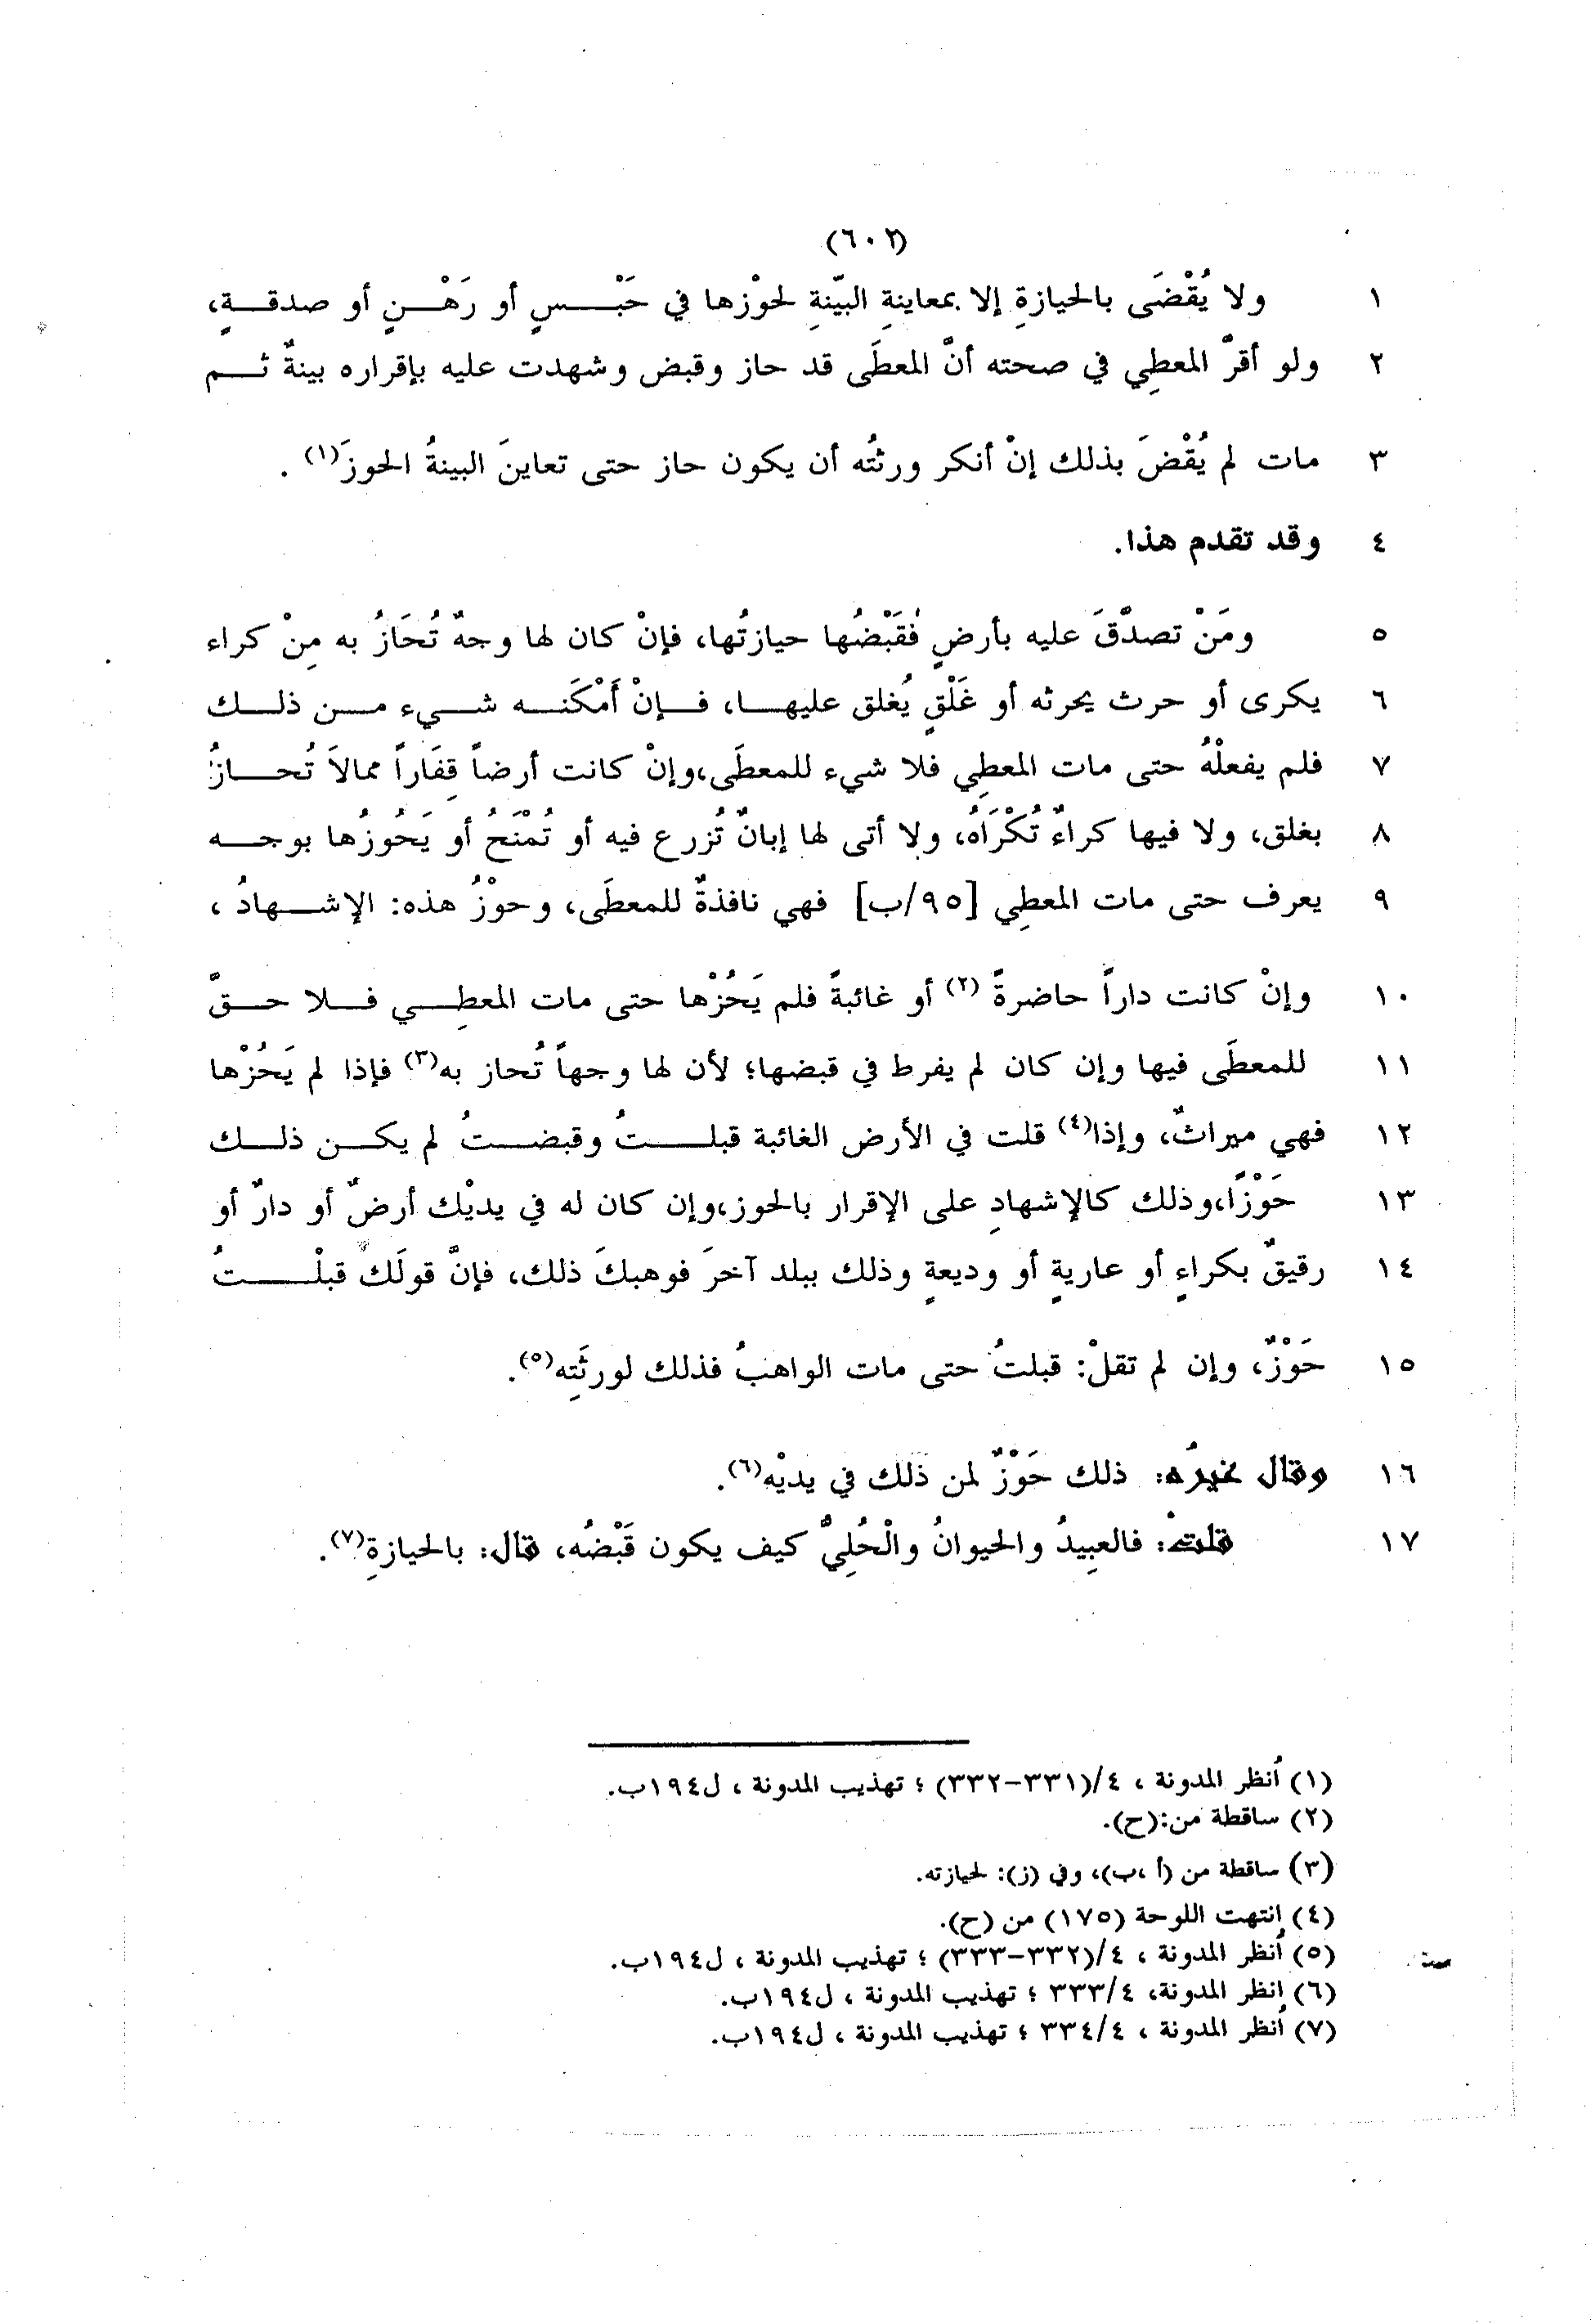 (٦٠٢)
١ ولا يُقْضَى بالحيازةِ إلا بمعاينةِ البيّنةِ لحوْزها في حَبْسٍ أو رَهْنٍ أو صدقةٍ،
٢ ولو أقرّ المعطِي في صحته أنَّ المعطَى قد حاز وقبض وشهدت عليه بإقراره بينةٌ ثم
٣ مات لم يُقْضَ بذلك إنْ أنكر ورثتُه أن يكون حاز حتى تعاينَ البينةُ الحوزَ(١) .
٤ وقد تقدم هذا.
٥ ومَنْ تصدّقَ عليه بأرضٍ فقَبْضُها حيازتُها، فإنْ كان لها وجهٌ تُحَازُ به مِنْ كراء
٦ يكرى أو حرث يحرثه أو غَلْقٍ يُغلق عليها، فإنْ أَمْكَنه شيء من ذلك
٧ فلم يفعلْهُ حتى مات المعطِي فلا شيء للمعطَى،وإنْ كانت أرضاً قِفَاراً ممالاَ تُحازُ
٨ بغلق، ولا فيها كراءٌ تُكْرَاهُ، ولا أتى لها إبانٌ تُزرع فيه أو تُمْنَحُ أو يَحُوزُها بوجه
٩ يعرف حتى مات المعطِي [٩٥/ب] فهي نافذةٌ للمعطَى، وحوْزُ هذه: الإشهادُ ،
١٠ وإنْ كانت داراً حاضرةً (٢) أو غائبةً فلم يَحُزْها حتى مات المعطِي فلا حقّ
١١ للمعطَى فيها وإن كان لم يفرط في قبضها؛ لأن لها وجهاً تُحاز به(٣) فإذا لم يَحُزْها
١٢ فهي ميراثٌ، وإذا(٤) قلت في الأرض الغائبة قبلتُ وقبضتُ لم يكن ذلك
١٣ حَوْزًا،وذلك كالإشهادِ على الإقرار بالحوز،وإن كان له في يديْك أرضٌ أو دارٌ أو
١٤ رقيقٌ بكراءٍ أو عاريةٍ أو وديعةٍ وذلك ببلد آخرَ فوهبكَ ذلك، فإنَّ قولَكَ قبلْتُ
١٥ حَوْزٌ، وإن لم تقلْ: قبلتُ حتى مات الواهبُ فذلك لورثَتِه(٥).
١٦ وقال غيرُه: ذلك حَوْزٌ لمن ذلك في يديْه(٦).
١٧ قلتُ: فالعبِيدُ والحيوانُ والْحُلِيُّ كيف يكون قَبْضُه، قال: بالحيازةِ(٧).
(١) أنظر المدونة ، ٤/(٣٣١-٣٣٢) ؛ تهذيب المدونة ، ل١٩٤ب.
(٢) ساقطة من:(ح).
(٣) ساقطة من (أ ،ب)، وفي (ز): لحيازته.
(٤) إنتهت اللوحة (١٧٥) من (ح).
(٥) أنظر المدونة ، ٤/(٣٣٢-٣٣٣) ؛ تهذيب المدونة ، ل١٩٤ب.
(٦) إنظر المدونة، ٣٣٣/٤ ؛ تهذيب المدونة ، ل١٩٤ب.
(٧) أنظر المدونة ، ٣٣٤/٤ ؛ تهذيب المدونة ، ل١٩٤ب.